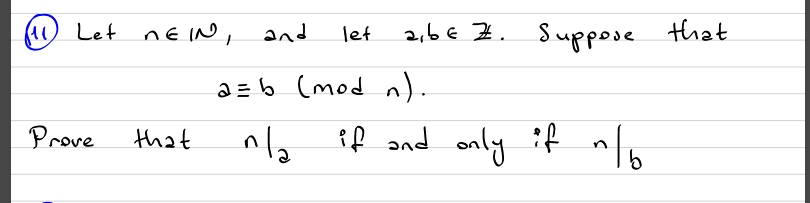 (11) Let n ∈ ℕ, and let a,b ∈ ℤ. Suppose that
a ≡ b (mod n).
Prove that n/a if and only if n/b